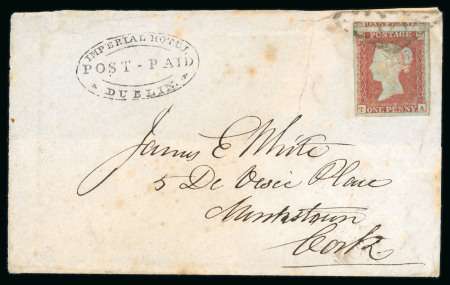 IMPERIAL HOTEL
POST - PAID
DUBLIN
POSTAGE
T A
ONE PENNY
James E White
5 De Vesci Place
Monkstown
Cork